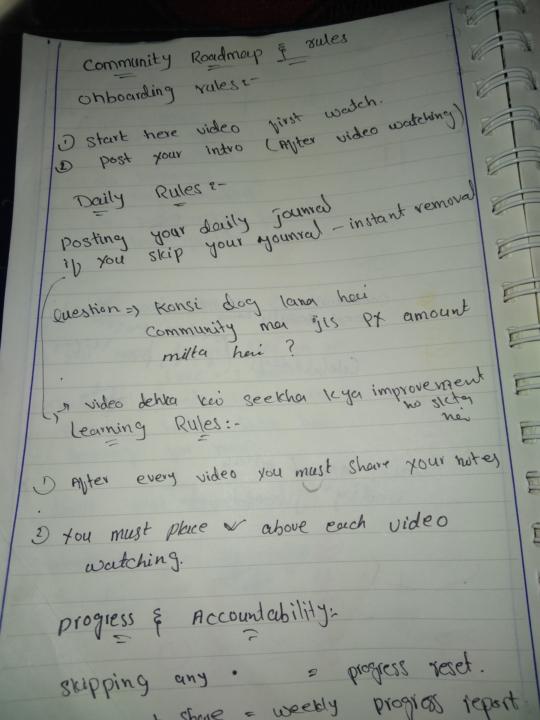 Community Roadmap & rules
Onboarding rules:-
① start here video first watch.
② post your intro (After video watching)
Daily Rules:-
Posting your daily jounral
if you skip your jounral - instant removal
Question => Konsi dog lana hai
community ma jis px amount
milta hai ?
video dehka kei seekha kya improvement
ho skta
hei
Learning Rules:-
1) After every video you must share your notes
2) You must place ✓ above each video
watching.
progress & Accountability:-
skipping any = progress reset.
share = weekly progress report